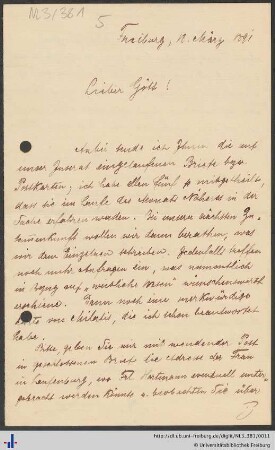 M3/381
5
Freiburg, 12. März 1891
Lieber Gött!
Anbei sende ich Ihnen die auf
unser Inserat eingelaufenen Briefe bzw.
Postkarten; ich habe allen fünf mitgetheilt,
dass sie im Laufe des Monats Näheres in der
Sache erfahren werden. Bei unserer nächsten Zu-
sammenkunft wollen wir dann berathen, was
wir dem Einzelnen schreiben. Jedenfalls treffen
noch mehr Anfragen ein, was namentlich
in Bezug auf "weibliche Wesen" wünschenswerth
erscheint. Dann noch eine merkwürdige
Karte von, die ich schon beantwortet
habe.
Bitte, geben Sie mir mit wendender Post
in geschlossenem Brief die Adresse der Frau
in Laufenburg, wo Frl. Hartmann eventuell unter-
gebracht werden könnte u. beobachten Sie über
http://dl.ub.uni-freiburg.de/diglit/M3_381/0011
Universitätsbibliothek Freiburg